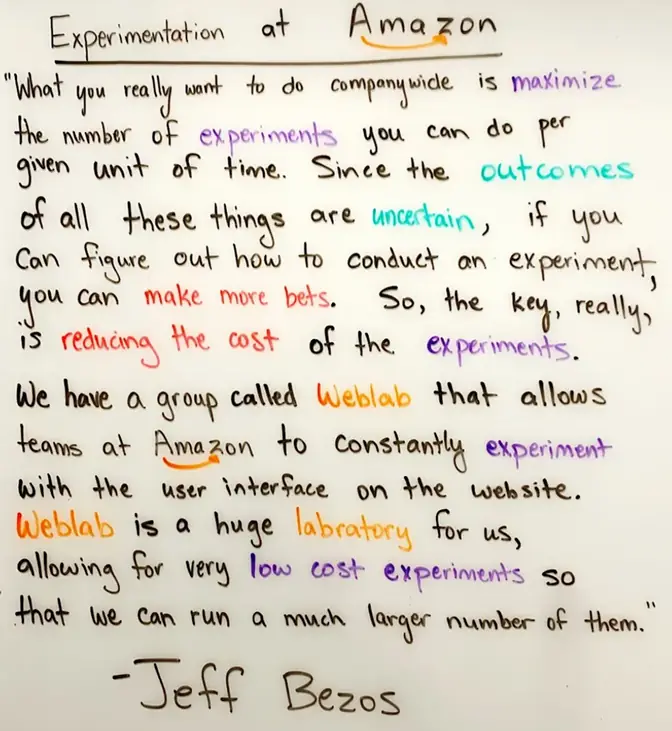 Experimentation at Amazon
"What you really want to do companywide is maximize
the number of experiments you can do per
given unit of time. Since the outcomes
of all these things are uncertain, if you
can figure out how to conduct an experiment,
you can make more bets. So, the key, really,
is reducing the cost of the experiments.
We have a group called Weblab that allows
teams at Amazon to constantly experiment
with the user interface on the website.
Weblab is a huge labratory for us,
allowing for very low cost experiments so
that we can run a much larger number of them."
-Jeff Bezos